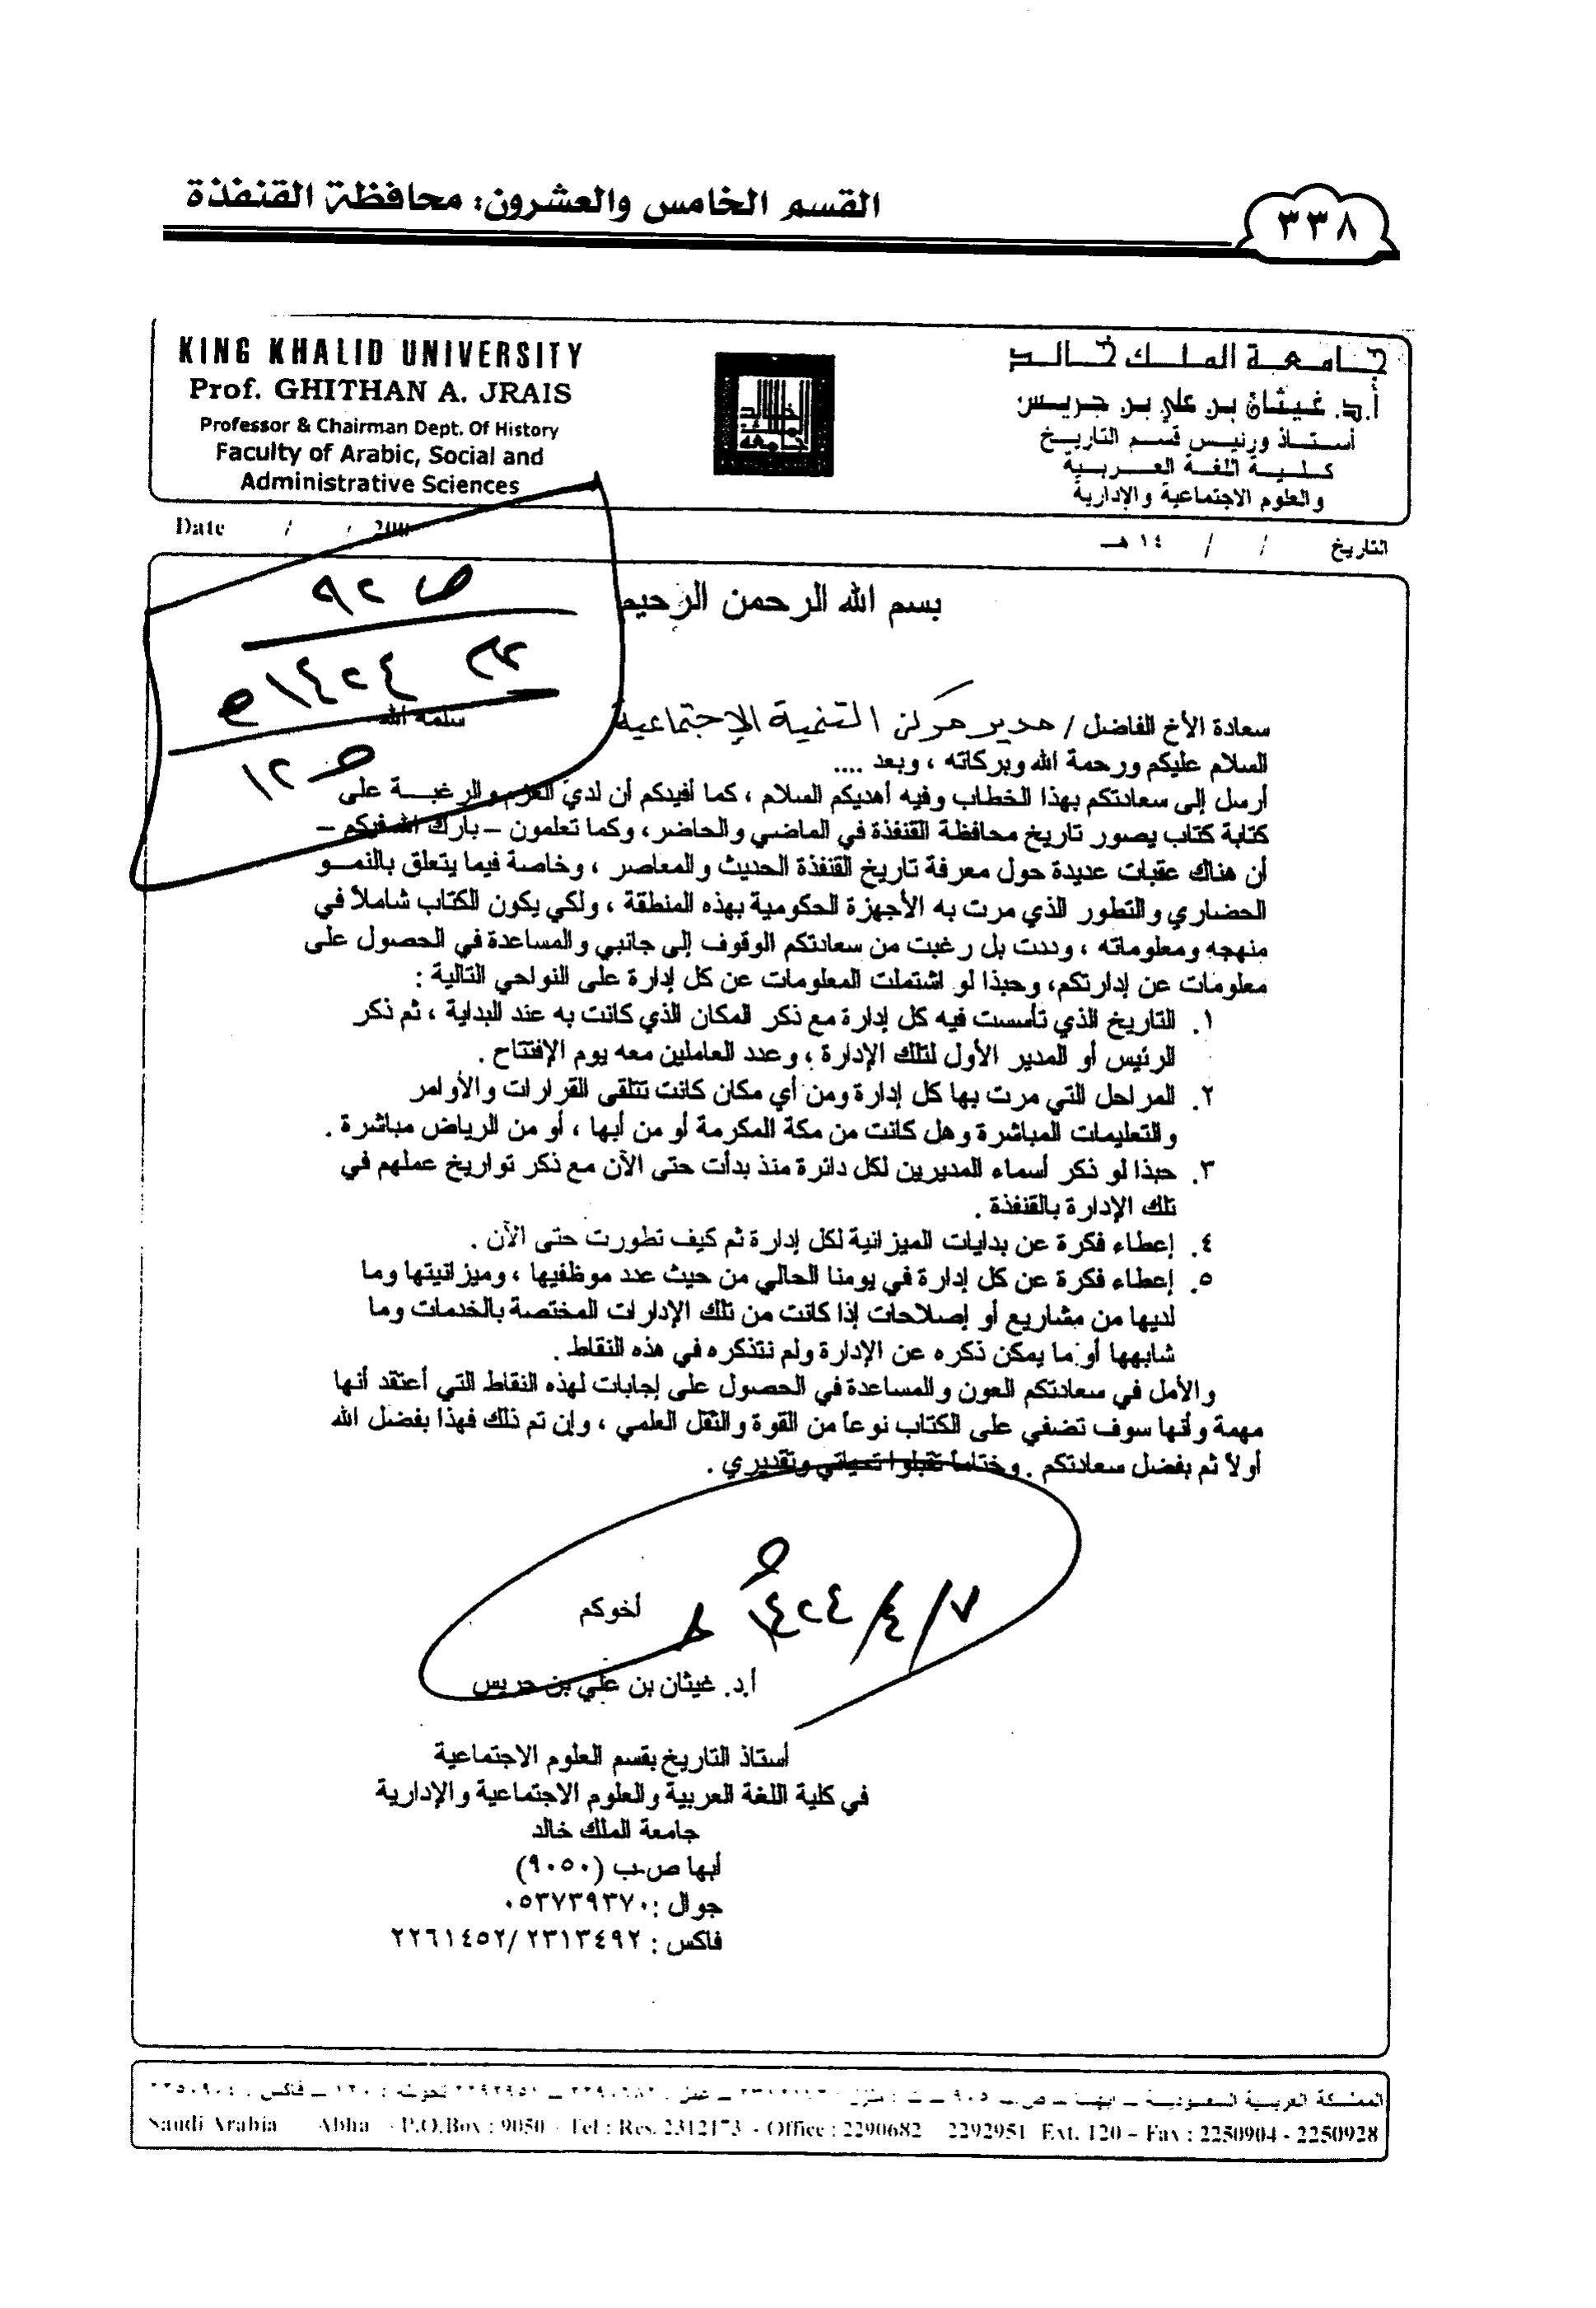 ٣٣٨
القسم الخامس والعشرون: محافظة القنفذة
KING KHALID UNIVERSITY
Prof. GHITHAN A. JRAIS
Professor & Chairman Dept. Of History
Faculty of Arabic, Social and
Administrative Sciences
جامعة الملك خالد
أ.د. غيثان بن علي بن جريس
أستاذ ورئيس قسم التاريخ
كلية اللغة العربية
والعلوم الاجتماعية والإدارية
Date / / 200
التاريخ / / ١٤ هـ
بسم الله الرحمن الرحيم
ص ٩٢
١٤٢٤هـ
ص ١٢
سعادة الأخ الفاضل / مدير مركز التنمية الإجتماعية سلمه الله
السلام عليكم ورحمة الله وبركاته ، وبعد ....
أرسل إلى سعادتكم بهذا الخطاب وفيه أهديكم السلام ، كما أفيدكم أن لدي العزم والرغبة على
كتابة كتاب يصور تاريخ محافظة القنفذة في الماضي والحاضر، وكما تعلمون – بارك الله فيكم –
أن هناك عقبات عديدة حول معرفة تاريخ القنفذة الحديث والمعاصر ، وخاصة فيما يتعلق بالنمو
الحضاري والتطور الذي مرت به الأجهزة الحكومية بهذه المنطقة ، ولكي يكون الكتاب شاملاً في
منهجه ومعلوماته ، وددت بل رغبت من سعادتكم الوقوف إلى جانبي والمساعدة في الحصول على
معلومات عن إدارتكم، وحبذا لو اشتملت المعلومات عن كل إدارة على النواحي التالية :
١. التاريخ الذي تأسست فيه كل إدارة مع ذكر المكان الذي كانت به عند البداية ، ثم ذكر
الرئيس أو المدير الأول لتلك الإدارة ، وعدد العاملين معه يوم الإفتتاح .
٢. المراحل التي مرت بها كل إدارة ومن أي مكان كانت تتلقى القرارات والأوامر
والتعليمات المباشرة وهل كانت من مكة المكرمة أو من أبها ، أو من الرياض مباشرة .
٣. حبذا لو ذكر أسماء المديرين لكل دائرة منذ بدأت حتى الآن مع ذكر تواريخ عملهم في
تلك الإدارة بالقنفذة .
٤. إعطاء فكرة عن بدايات الميزانية لكل إدارة ثم كيف تطورت حتى الآن .
٥. إعطاء فكرة عن كل إدارة في يومنا الحالي من حيث عدد موظفيها ، وميزانيتها وما
لديها من مشاريع أو إصلاحات إذا كانت من تلك الإدارات المختصة بالخدمات وما
شابهها أو ما يمكن ذكره عن الإدارة ولم نتذكره في هذه النقاط .
والأمل في سعادتكم العون والمساعدة في الحصول على إجابات لهذه النقاط التي أعتقد أنها
مهمة وأنها سوف تضفي على الكتاب نوعاً من القوة والثقل العلمي ، وإن تم ذلك فهذا بفضل الله
أولاً ثم بفضل سعادتكم . وختاماً تقبلوا تحياتي وتقديري .
٧/٤/١٤٢٤هـ
أخوكم
أ.د. غيثان بن علي بن جريس
أستاذ التاريخ بقسم العلوم الاجتماعية
في كلية اللغة العربية والعلوم الاجتماعية والإدارية
جامعة الملك خالد
أبها ص.ب (٩٠٥٠)
جوال :٠٥٣٧٣٩٣٧٠
فاكس : ٢٢٦١٤٥٢/٢٣١٣٤٩٢
المملكة العربية السعودية – أبها
Saudi Arabia Abha - P.O.Box : 9050 - Tel : Res. 2312173 - Office : 2290682 2292951 Ext. 120 – Fax : 2250904 - 2250928